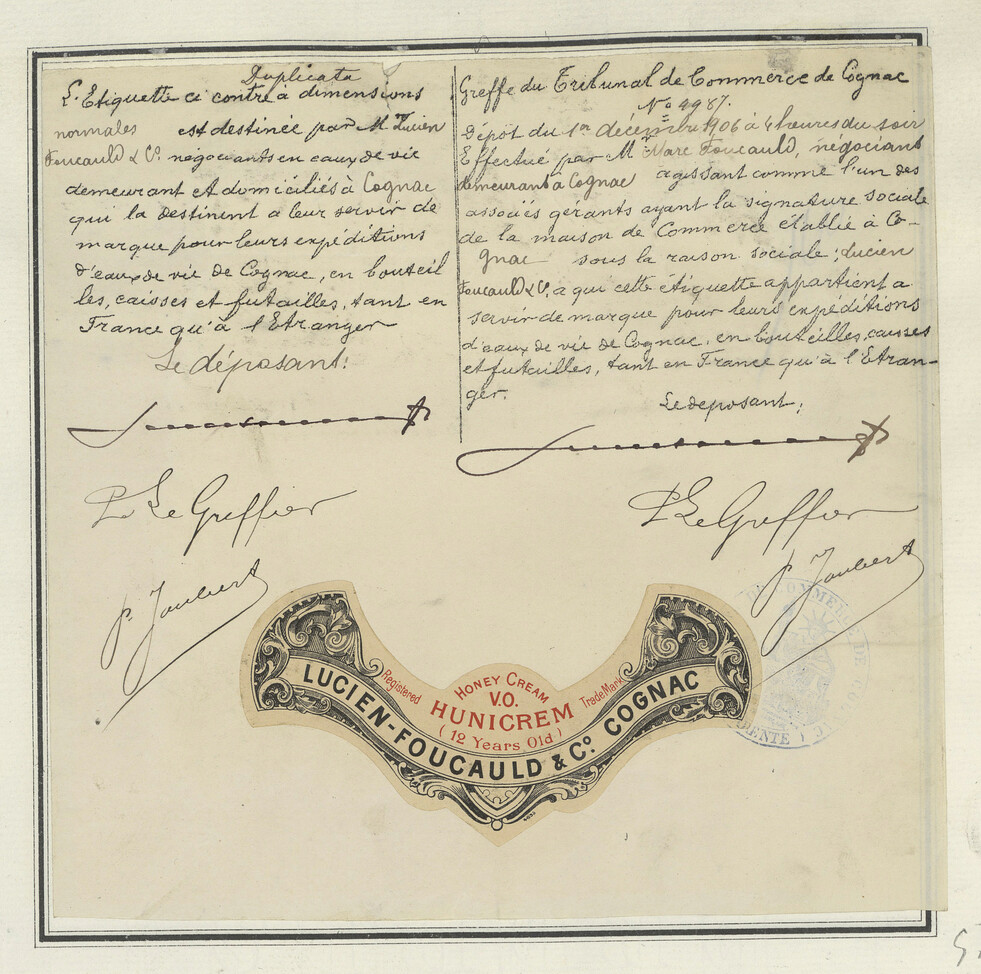 Duplicata
L'Etiquette ci contre à dimensions
normales est destinée par M Lucien
Foucauld & Co. négociants en eaux de vie
demeurant et domiciliés à Cognac
qui la destinent a leur servir de
marque pour leurs expéditions
d'eaux de vie de Cognac, en bouteil
les, caisses et futailles, tant en
France qu'à l'Etranger
Le déposant:
P. Le Greffier
P. Joubert
Greffe du Tribunal de Commerce de Cognac
No 4987.
Dépôt du 1er décembre 1906 à 4 heures du soir
Effectué par M Marc Foucauld, négociant
demeurant à Cognac agissant comme l'un des
associés gérants ayant la signature sociale
de la maison de Commerce établie à Co-
gnac sous la raison sociale; Lucien
Foucauld & Co, a qui cette étiquette appartient a
servir de marque pour leurs expéditions
d'eaux de vie de Cognac, en bouteilles, caisses
et futailles, tant en France qu'à l'Etran-
ger.
Le deposant:
P. Le Greffier
P. Joubert
HONEY CREAM
V.O.
Registered HUNICREM Trade Mark
(12 Years Old)
LUCIEN-FOUCAULD & Co. COGNAC